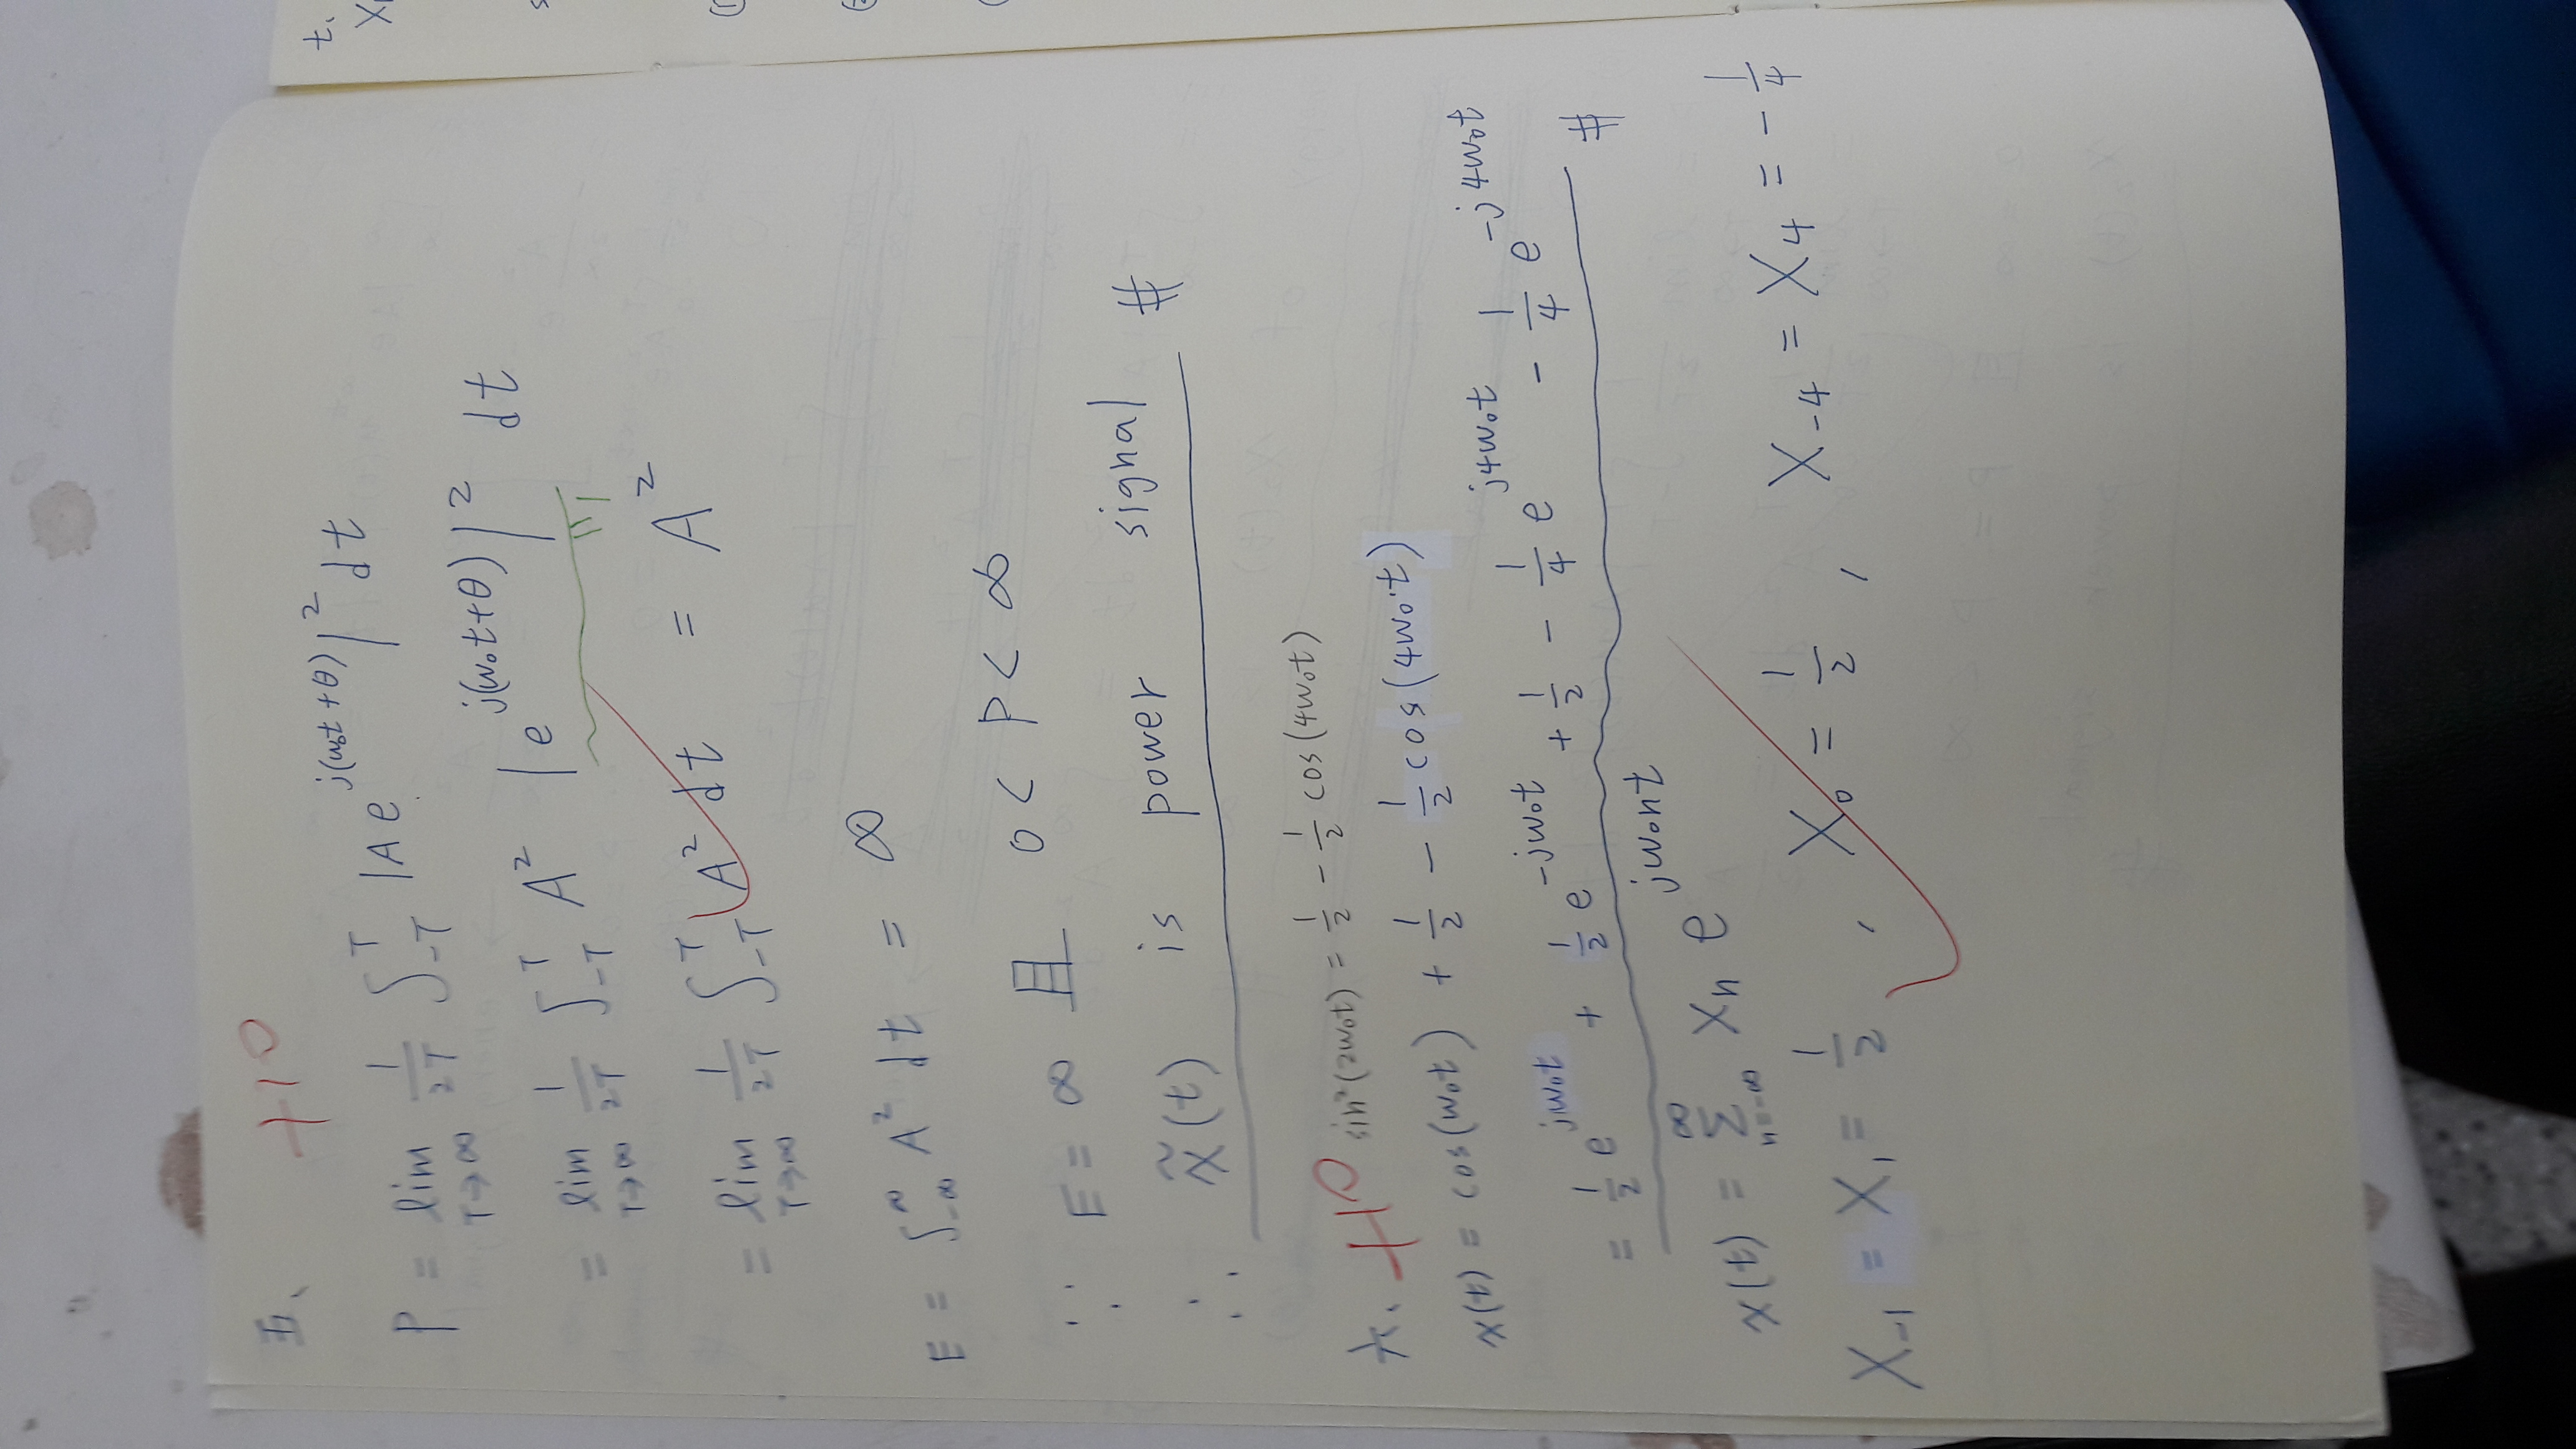 五、 +10
P = lim_{T→∞} 1/2T ∫_{-T}^{T} |A e^{j(w₀t+θ)}|² dt
= lim_{T→∞} 1/2T ∫_{-T}^{T} A² |e^{j(w₀t+θ)}|² dt
1
= lim_{T→∞} 1/2T ∫_{-T}^{T} A² dt = A²
E = ∫_{-∞}^{∞} A² dt = ∞
∵ E = ∞ 且 0 < P < ∞
∴ x̃(t) is power signal #
六、 +10 sin²(2w₀t) = 1/2 - 1/2 cos(4w₀t)
x(t) = cos(w₀t) + 1/2 - 1/2 cos(4w₀t)
= 1/2 e^{jw₀t} + 1/2 e^{-jw₀t} + 1/2 - 1/4 e^{j4w₀t} - 1/4 e^{-j4w₀t} #
x(t) = Σ_{n=-∞}^{∞} Xₙ e^{jw₀nt}
X₋₁ = X₁ = 1/2 , X₀ = 1/2 , X₋₄ = X₄ = -1/4
t.